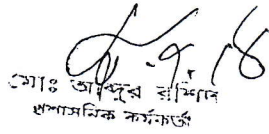 মোঃ আব্দুর রশিদ
প্রশাসনিক কর্মকর্তা